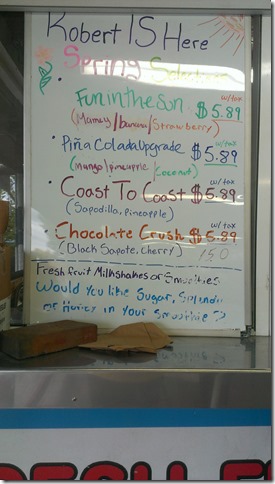 Robert IS Here
Spring Selection
Fun in the Sun $5.89 w/tax
(Mamey/banana/Strawberry)
Piña Colada Upgrade $5.89 w/tax
(Mango/pineapple/Coconut)
Coast To Coast $5.89 w/tax
(Sapodilla, pineapple)
Chocolate Crush $5.89 w/tax
(Black Sapote, Cherry)
Fresh fruit Milkshakes or Smoothies
Would you like Sugar, Splenda
or Honey in your Smoothie??